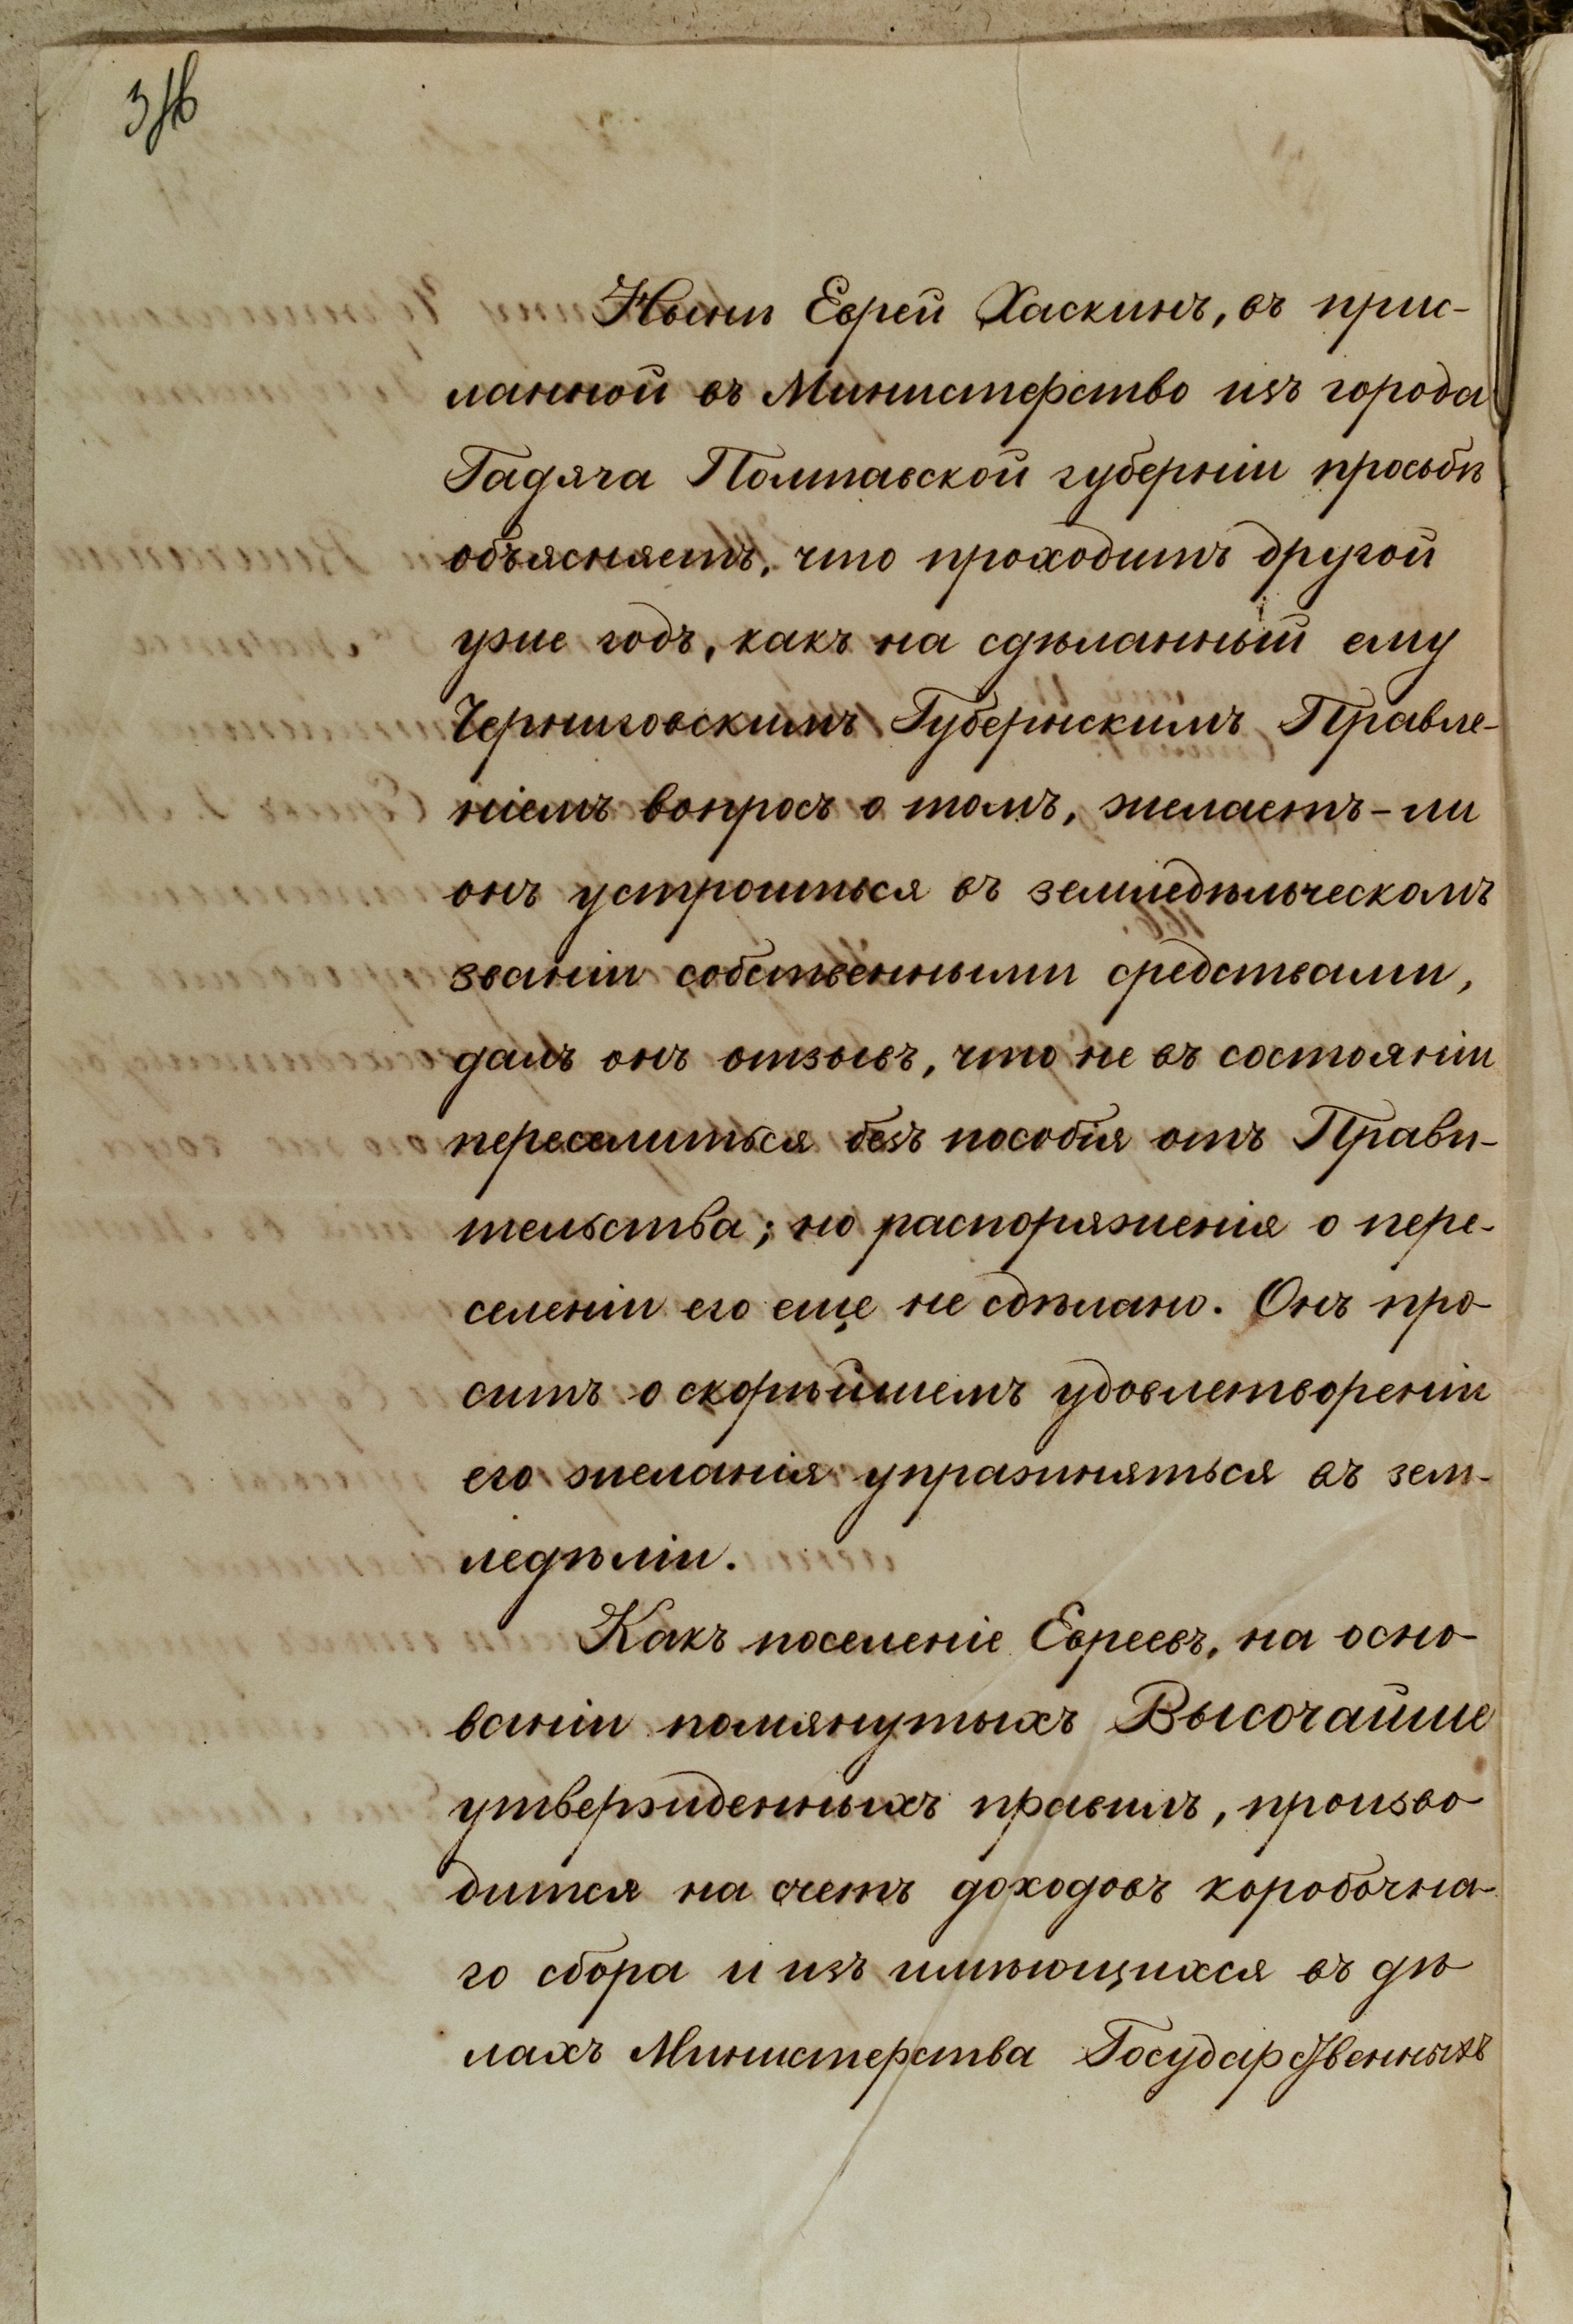 Нынѣ Еврей Хаскинъ, въ прис-
ланной въ Министерство изъ города
Гадяча Полтавской губерніи просьбѣ
объясняетъ, что проходитъ другой
уже годъ, какъ на сдѣланный ему
Черниговскимъ Губернскимъ Правле-
ніемъ вопросъ о томъ, желаетъ-ли
онъ устроиться въ земледѣльческомъ
званіи собственными средствами,
далъ онъ отзывъ, что не въ состояніи
переселиться безъ пособія отъ Прави-
тельства; но распоряженія о пере-
селеніи его еще не сдѣлано. Онъ про-
ситъ о скорѣйшемъ удовлетвореніи
его желанія упражняться въ зем-
ледѣліи.
Какъ поселеніе Евреевъ, на осно-
ваніи помянутыхъ Высочайше
утвержденныхъ правилъ, произво-
дится на счетъ доходовъ коробочна-
го сбора и изъ имѣющихся въ дѣ-
лахъ Министерства Государственныхъ